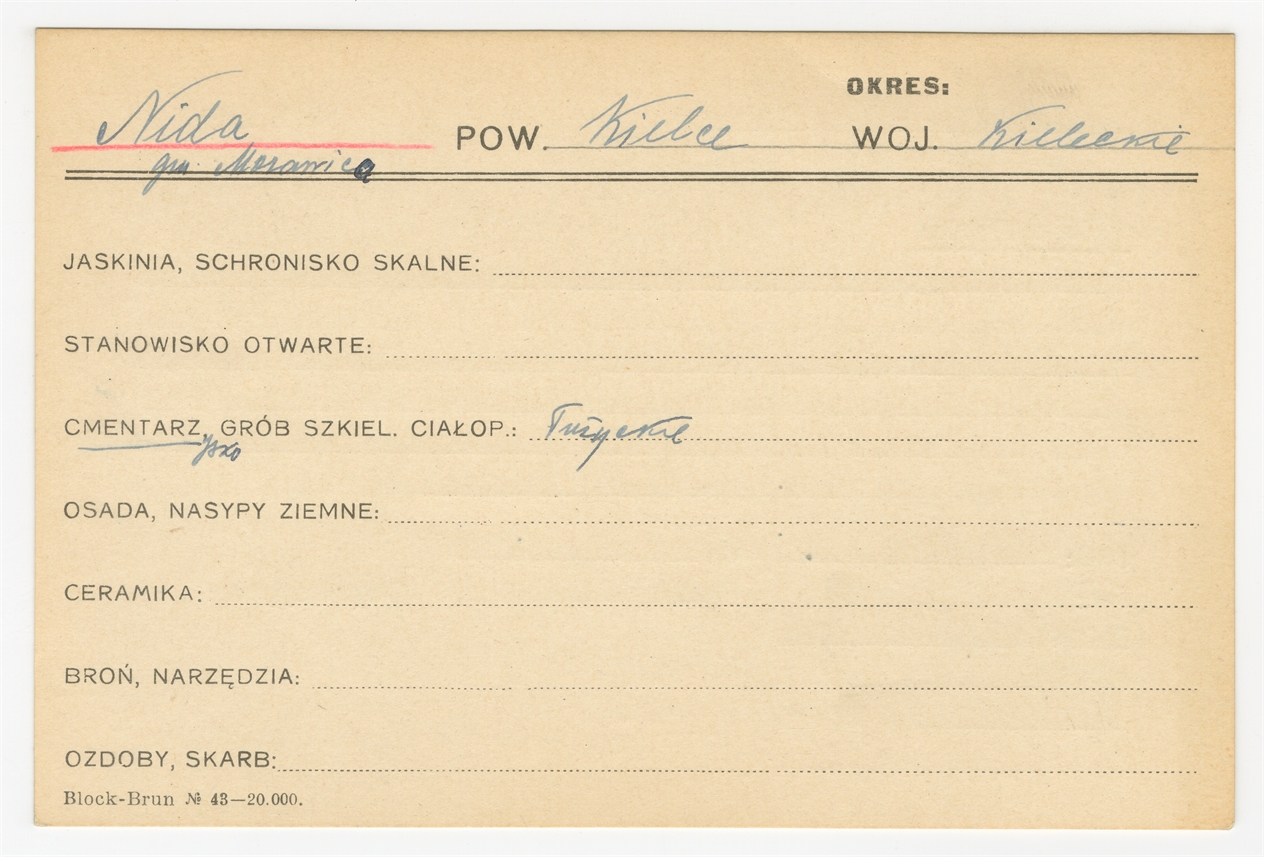 OKRES:
Nida POW. Kielce WOJ. Kieleckie
gm. Morawica
JASKINIA, SCHRONISKO SKALNE:
STANOWISKO OTWARTE:
CMENTARZ, GRÓB SZKIEL. CIAŁOP.: Łużyckie
ysko
OSADA, NASYPY ZIEMNE:
CERAMIKA:
BROŃ, NARZĘDZIA:
OZDOBY, SKARB:
Block-Brun № 43—20.000.